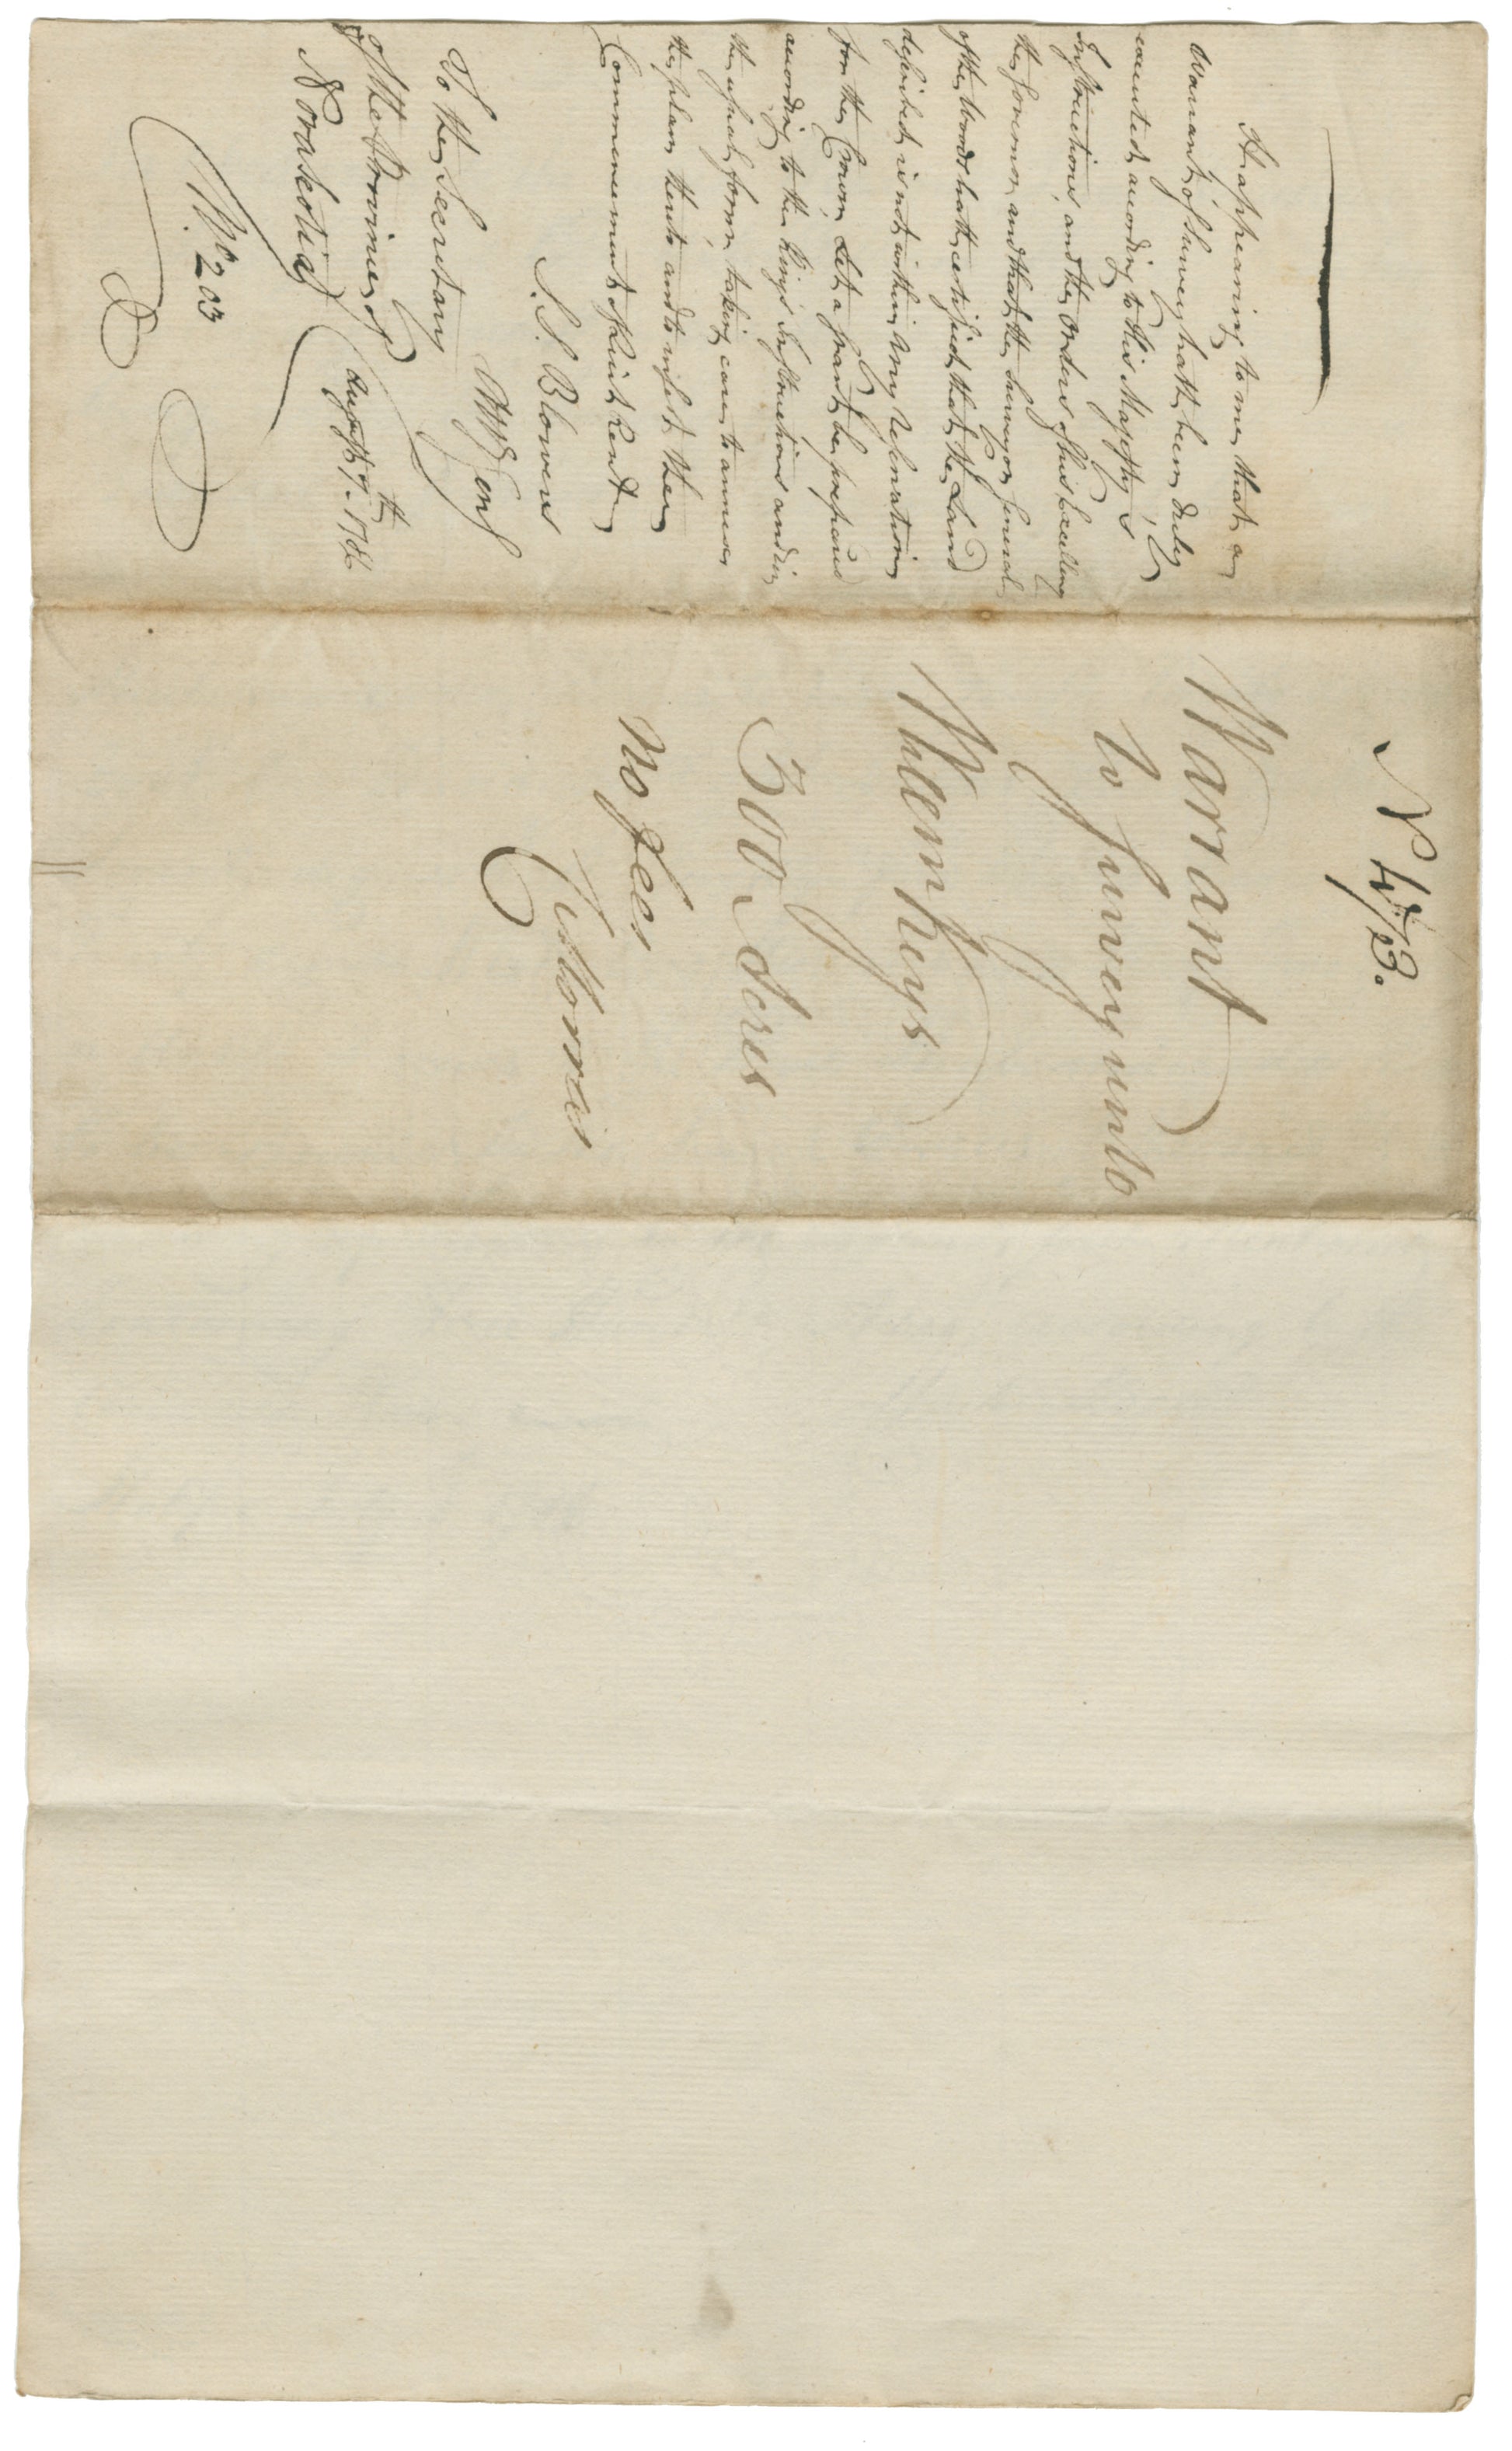 It appearing to me that a
Warrant of Survey hath been duly
executed according to His Majesty's
Instructions, and the Orders of his Excellency
the Governor, and that the Surveyor General
of the Woods hath certified that the Land
described is not within any reservation
for the Crown Let a Grant be prepared
according to the King's Instructions and in
the usual form, taking care to annex
the plan thereto and to insert the
Commencement of Quit Rent
S. S. Blowers
Atty Genl
To the Secretary
of the Province of
Nova Scotia
August 9th 178
No 203
No 423.
Warrant
to survey unto
300 Acres
No fees